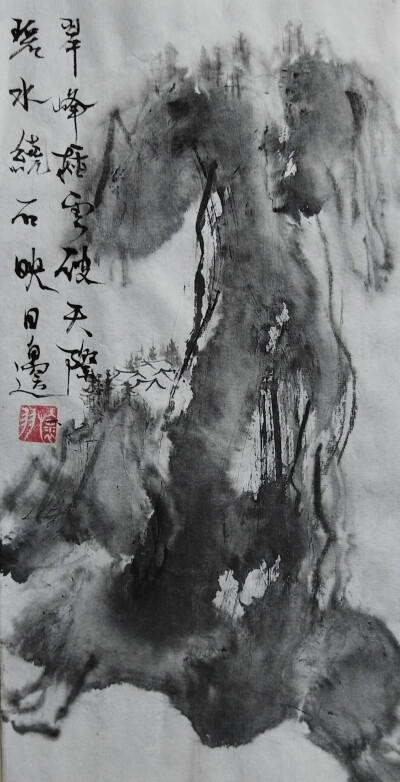 翠峰插雲破天際
碧水繞石映日邊